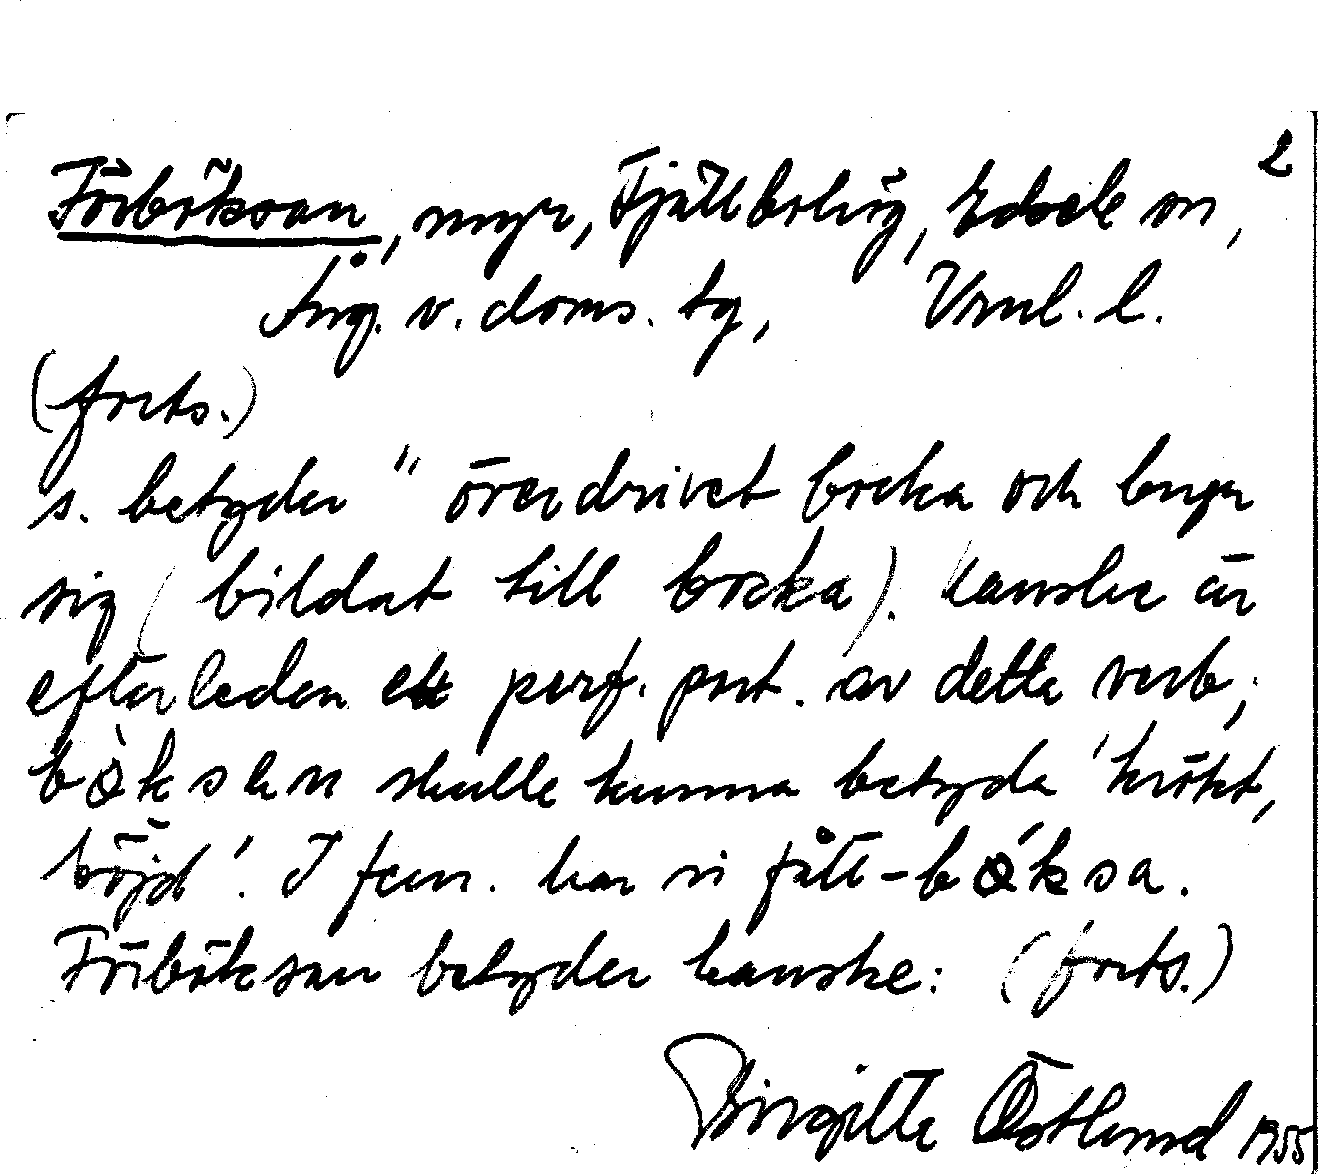 2
Förböksan, myr, Fjällbolrög, Edsele sn,
Ång. v. doms. tg, Vrnl. l.
(forts.)
s. betyder "överdrivet bocka och buga
sig (bildat till bocka). Kanske är
efterleden ett perf. part. av detta verb;
bö̀ksen skulle kunna betyda 'krökt,
böjd'. I fem. har vi fått -bö́ksa.
Förböksan betyder kanske: (forts.)
Birgitte Östlund 1955